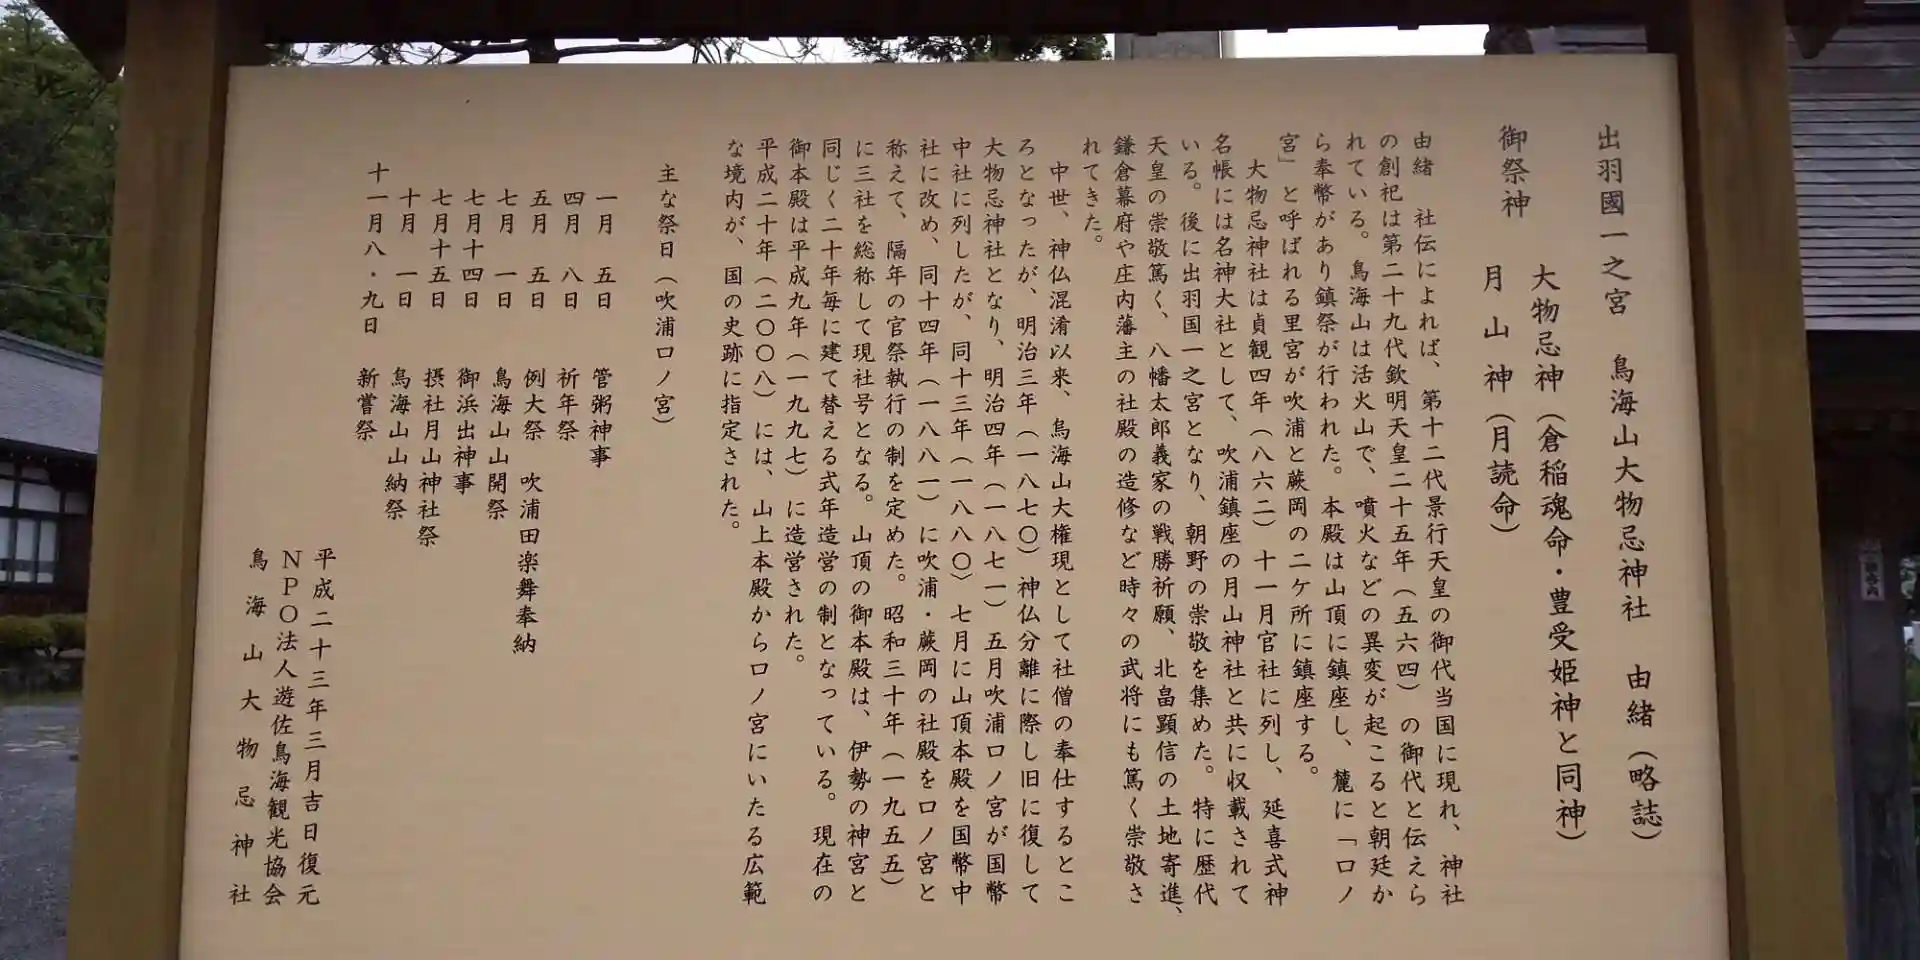 出羽國一之宮　鳥海山大物忌神社　由緒（略誌）
御祭神　大物忌神（倉稲魂命・豊受姫神と同神）
月山神（月読命）
由緒　社伝によれば、第十二代景行天皇の御代当国に現れ、神社
の創祀は第二十九代欽明天皇二十五年（五六四）の御代と伝えら
れている。鳥海山は活火山で、噴火などの異変が起こると朝廷か
ら奉幣があり鎮祭が行われた。本殿は山頂に鎮座し、麓に「口ノ
宮」と呼ばれる里宮が吹浦と蕨岡の二ケ所に鎮座する。
大物忌神社は貞観四年（八六二）十一月官社に列し、延喜式神
名帳には名神大社として、吹浦鎮座の月山神社と共に収載されて
いる。後に出羽国一之宮となり、朝野の崇敬を集めた。特に歴代
天皇の崇敬篤く、八幡太郎義家の戦勝祈願、北畠顕信の土地寄進、
鎌倉幕府や庄内藩主の社殿の造修など時々の武将にも篤く崇敬さ
れてきた。
中世、神仏混淆以来、鳥海山大権現として社僧の奉仕するとこ
ろとなったが、明治三年（一八七〇）神仏分離に際し旧に復して
大物忌神社となり、明治四年（一八七一）五月吹浦口ノ宮が国幣
中社に列したが、同十三年（一八八〇）七月に山頂本殿を国幣中
社に改め、同十四年（一八八一）に吹浦・蕨岡の社殿を口ノ宮と
称えて、隔年の官祭執行の制を定めた。昭和三十年（一九五五）
に三社を総称して現社号となる。山頂の御本殿は、伊勢の神宮と
同じく二十年毎に建て替える式年造営の制となっている。現在の
御本殿は平成九年（一九九七）に造営された。
平成二十年（二〇〇八）には、山上本殿から口ノ宮にいたる広範
な境内が、国の史跡に指定された。
主な祭日（吹浦口ノ宮）
一月　五日　管粥神事
四月　八日　祈年祭
五月　五日　例大祭　吹浦田楽舞奉納
七月　一日　鳥海山山開祭
七月十四日　御浜出神事
七月十五日　摂社月山神社祭
十月　一日　鳥海山山納祭
十一月八・九日　新嘗祭
平成二十三年三月吉日復元
ＮＰＯ法人遊佐鳥海観光協会
鳥海山大物忌神社